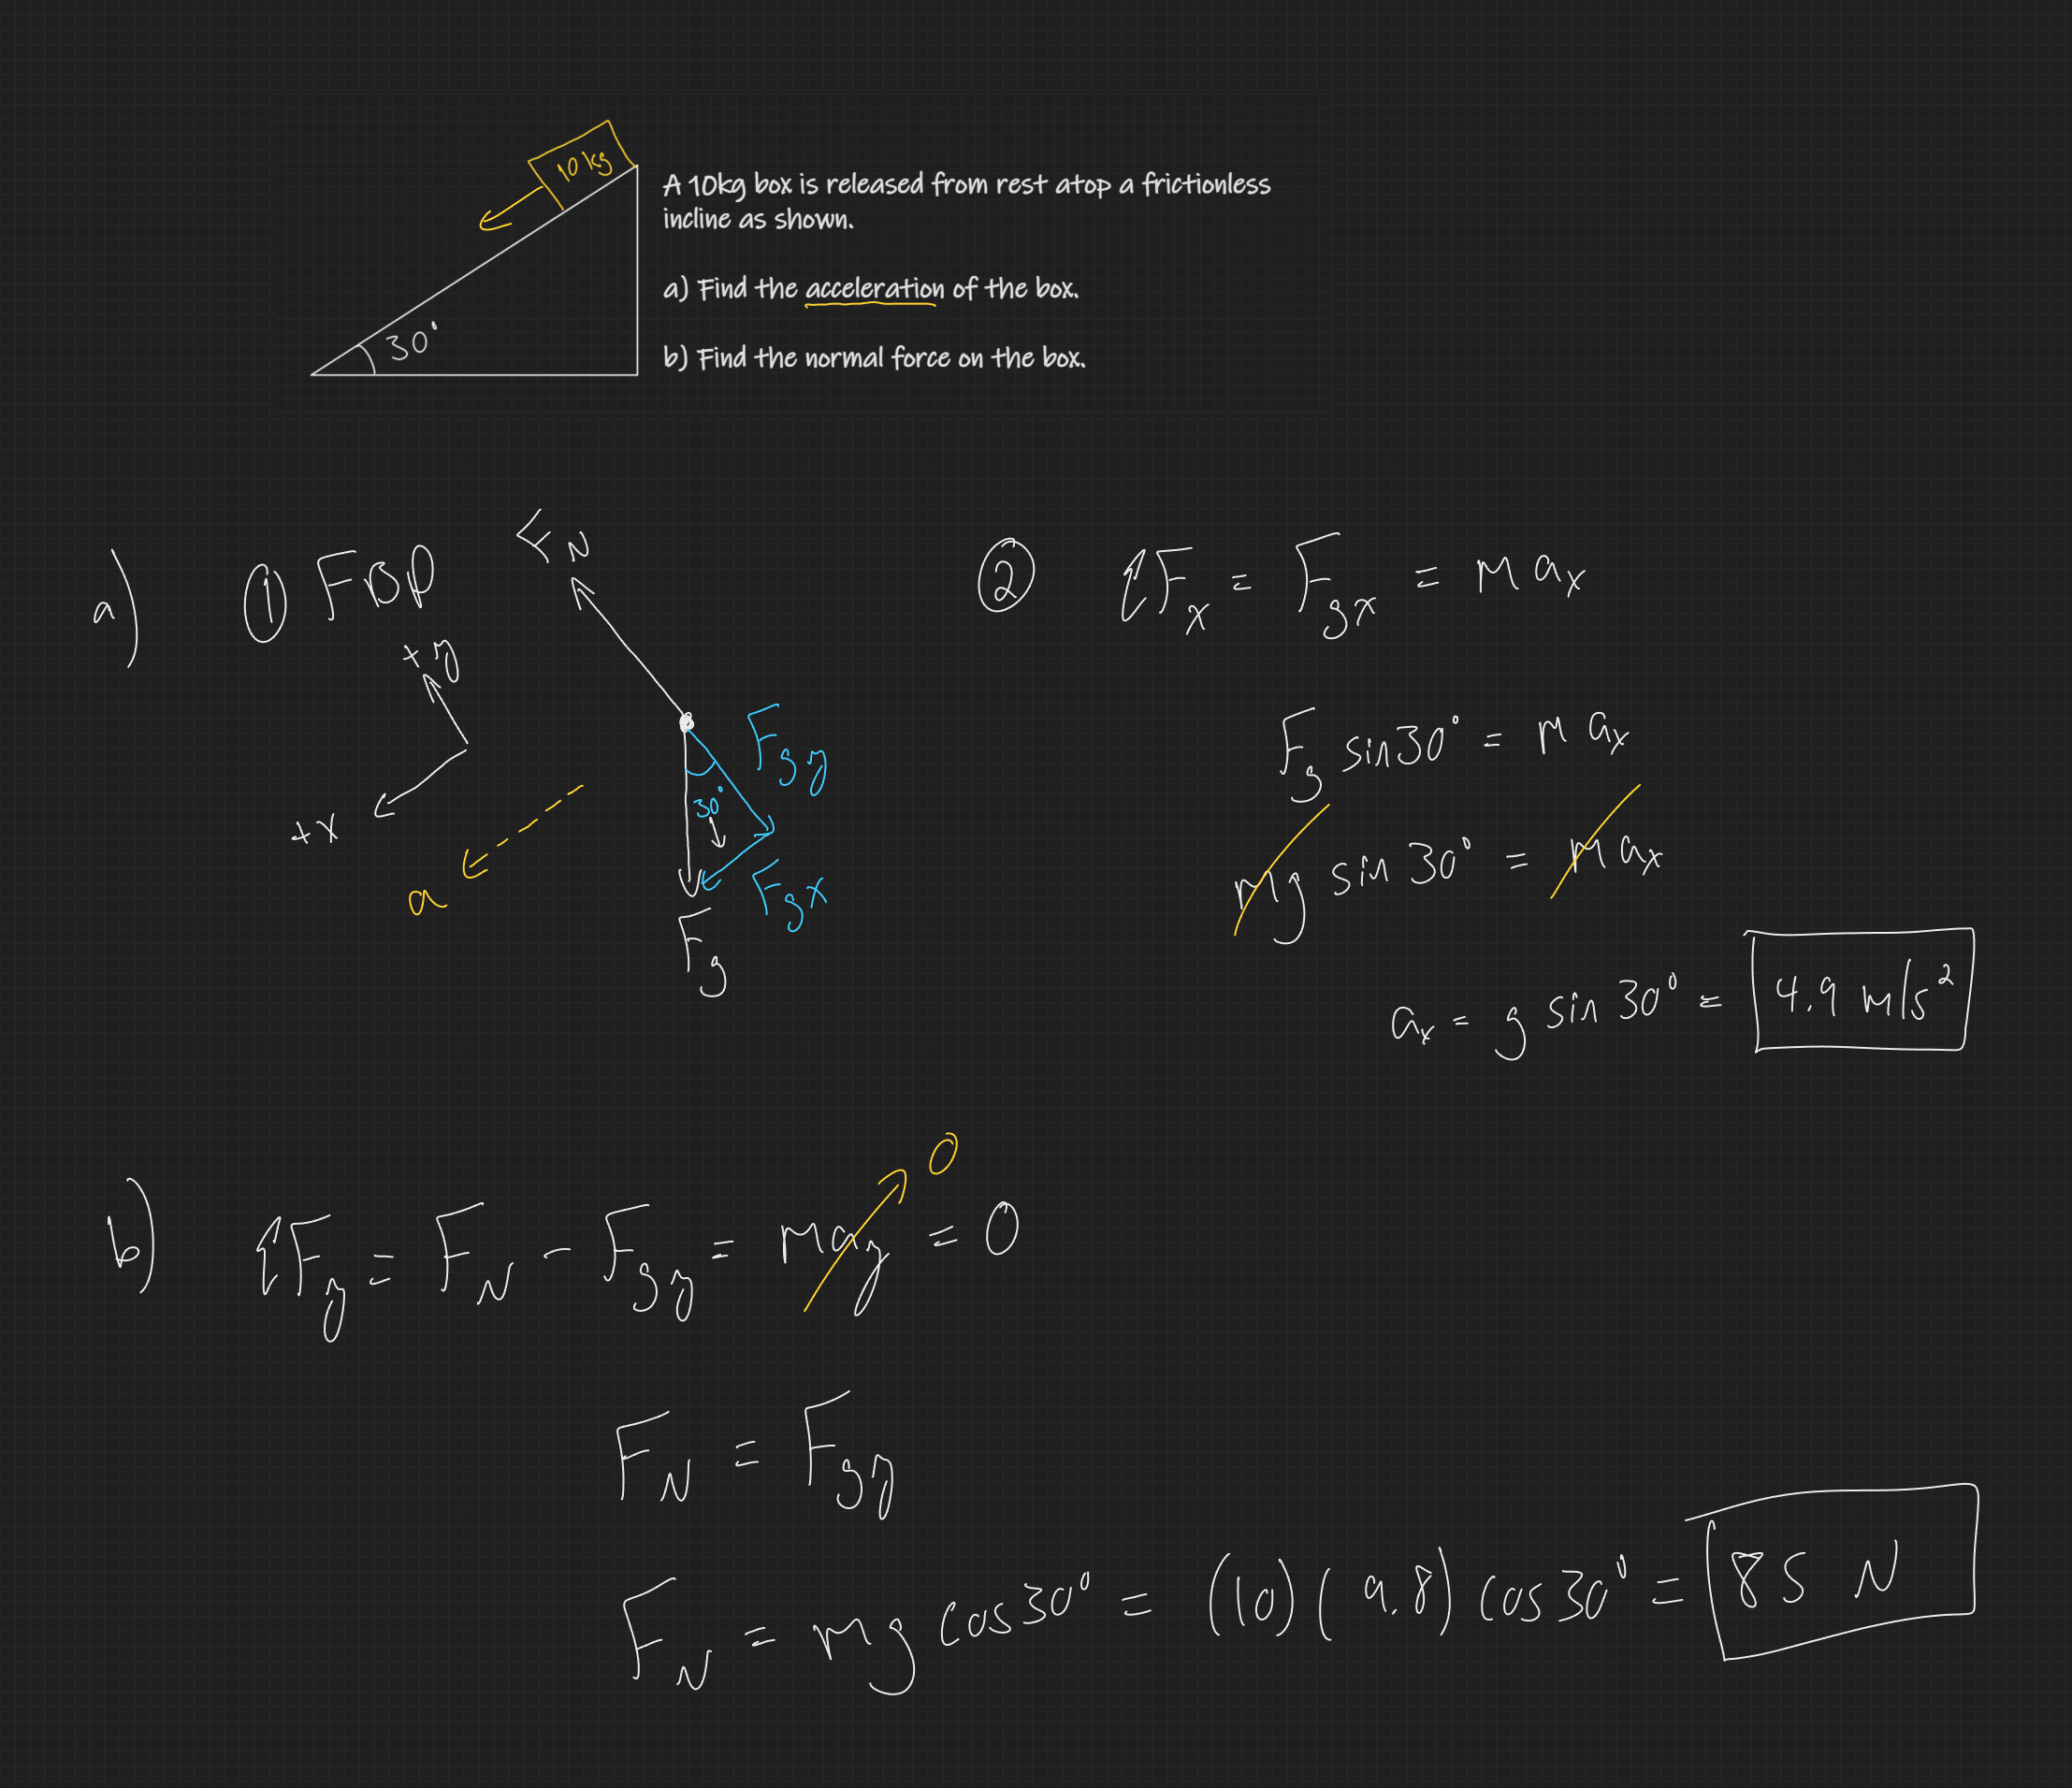 10 kg
A 10kg box is released from rest atop a frictionless
incline as shown.
a) Find the acceleration of the box.
30°
b) Find the normal force on the box.
a) ① FBD
F_N
+y
+x
a
F_gy
30°
F_gx
F_g
② ΣF_x = F_gx = m a_x
F_g sin30° = m a_x
mg sin 30° = m a_x
a_x = g sin 30° = 4.9 m/s²
b) ΣF_y = F_N - F_gy = ma_y = 0
0
F_N = F_gy
F_N = mg cos30° = (10)(9.8) cos30° = 85 N